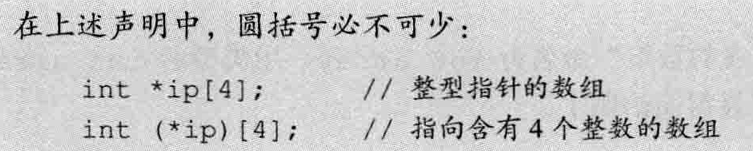 在上述声明中，圆括号必不可少：
int *ip[4]; // 整型指针的数组
int (*ip)[4]; // 指向含有4个整数的数组